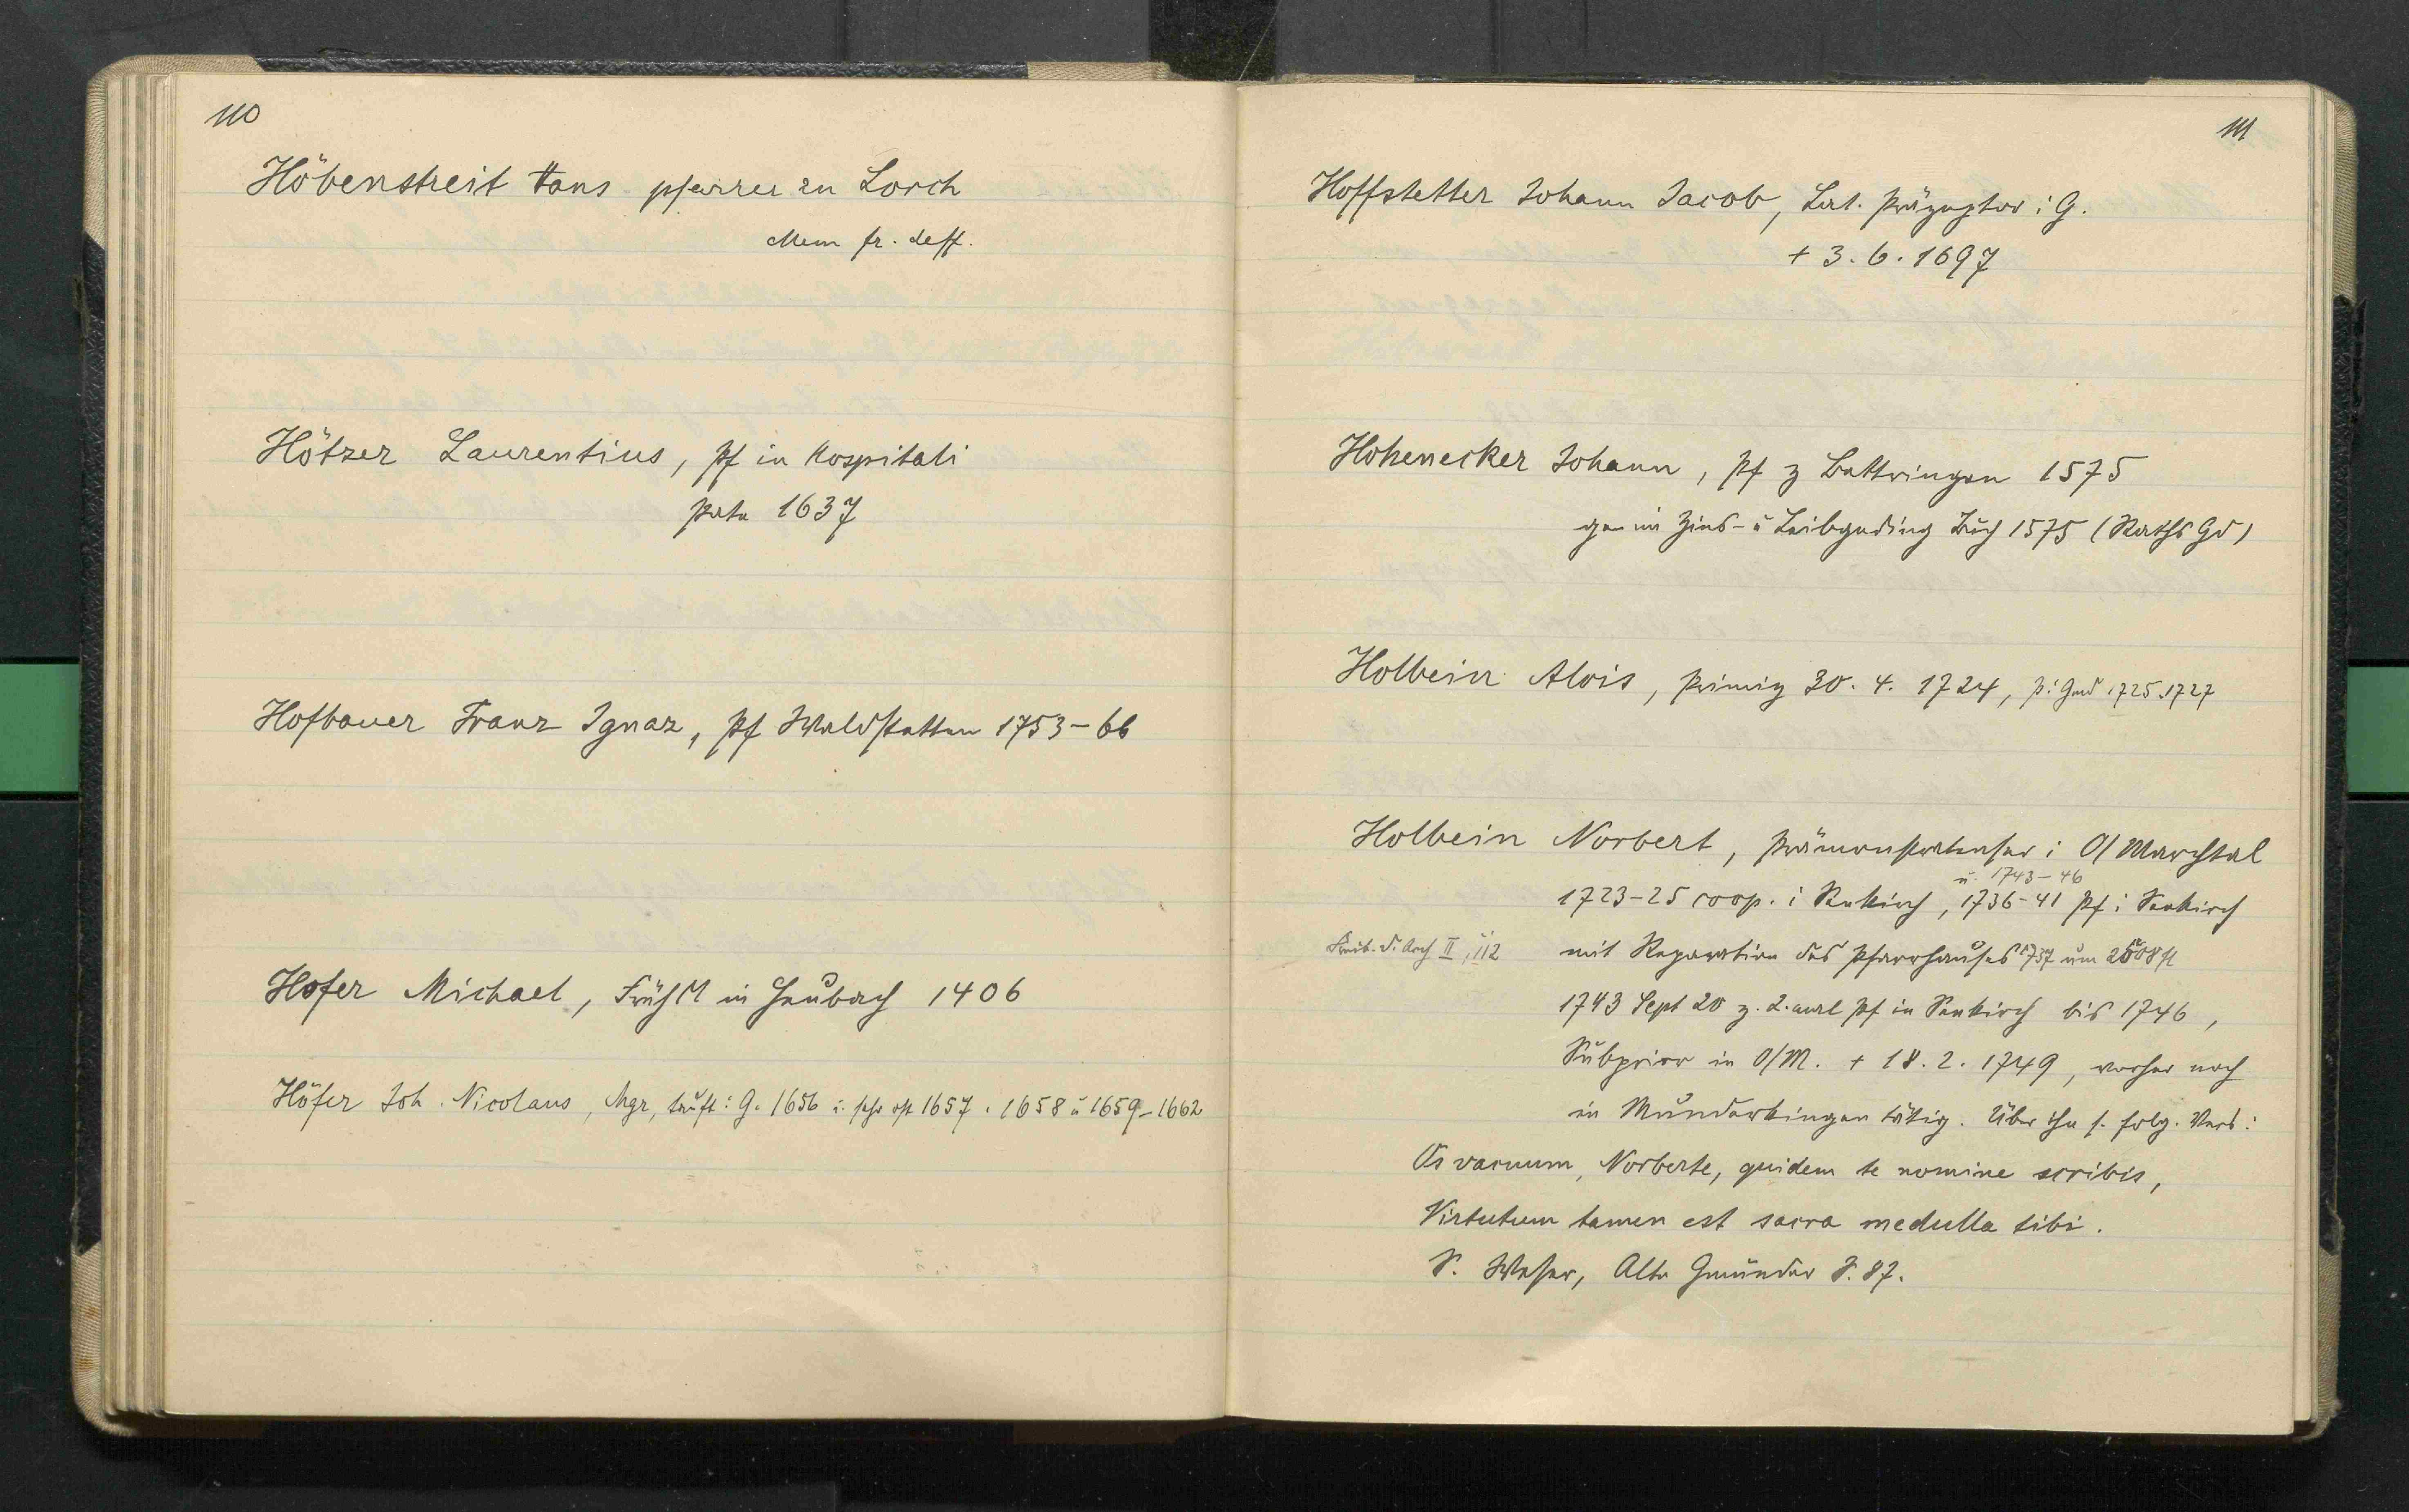 110
Höbenstreit Hans pfarrer zu Lorch
Mem fr. deff.
Hötzer Laurentius, Pf in hospitali
Pate 1637
Hofbauer Franz Ignaz, Pf Waldstetten 1753-66
Hofer Michael, FrühM in Heubach 1406
Höfer Joh. Nicolaus, Mgr, tauft i G. 1656 u. sehr oft 1657. 1658 u 1659-1662
111
Hoffstetter Johann Jacob, Lat. Präzeptor i G.
+ 3.6.1697
Hohenecker Johann, Pf z Bettringen 1575
gen im Zins- u Leibgeding Buch 1575 (Raths Gd)
Holbein Alois, Primiz 30.4.1724, P. i Gmd 1725.1727
Holbein Norbert, Prämonstratenser i O/Marchtal
u. 1743-46
1723-25 coop. i Seekirch, 1736-41 Pf i Seekirch
Schwäb. d. Arch II, 112 mit Reparation des Pfarrhauses 1737 um 2508 fl
1743 Sept 20 z. 2. mal Pf in Seekirch bis 1746,
Subprior in O/M. + 18.2.1749, vorher noch
in Munderkingen tätig. Über ihn s. folg. Vers:
Os vacuum, Norberte, quidem te nomine scribis,
Virtutum tamen est sacra medulla tibi.
S. Weser, Alte Gmünder S. 87.